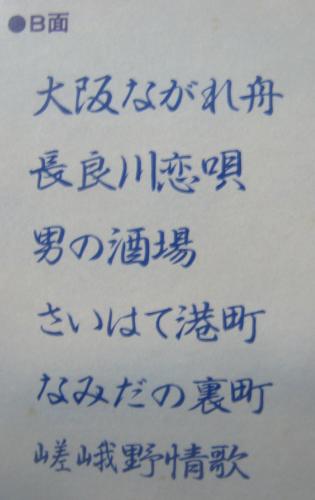 ●B面
大阪ながれ舟
長良川恋唄
男の酒場
さいはて港町
なみだの裏町
嵯峨野情歌